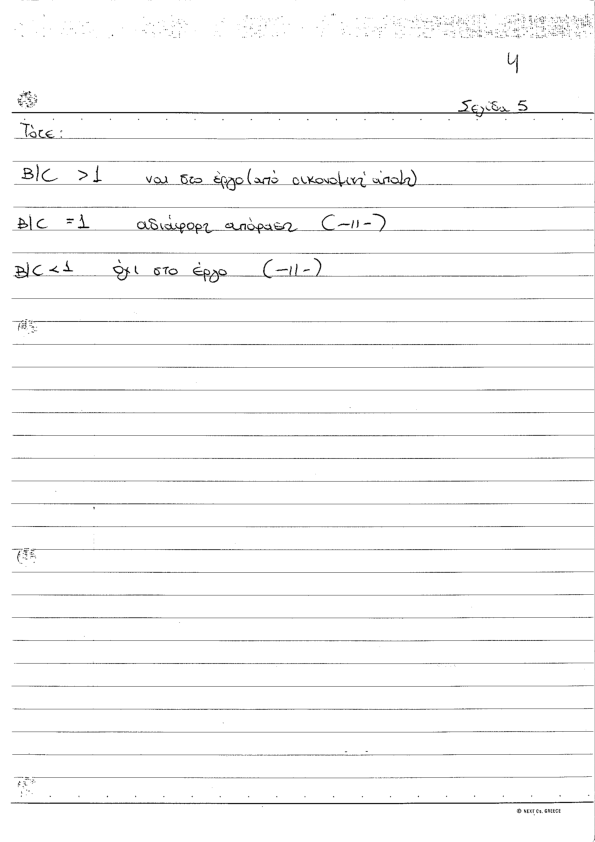 4
Σελίδα 5
Τότε:
B|C >1 ναι στο έργο (από οικονομική άποψη)
B|C =1 αδιάφορη απόφαση (-11-)
B|C <1 όχι στο έργο (-11-)
© NEXT Co. GREECE